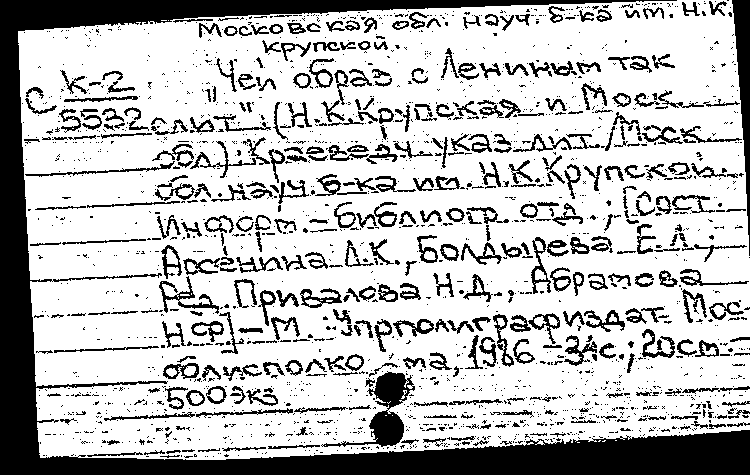 Московская обл. науч. б-ка им. Н.К.
Крупской.
С К-2
5532
"Чей образ с Лениным так
слит": (Н.К.Крупская и Моск.
обл.): Краеведч. указ. лит. /Моск.
обл. науч. б-ка им. Н.К.Крупской.
Информ.-библиогр. отд.; [Сост.
Арсенина Л.К., Болдырева Е.Л.;
Ред. Привалова Н.Д., Абрамова
Н.Ф] - М.: Упрполиграфиздат Мос
облисполко ма, 1986 - 34с.; 20см. -
500экз.